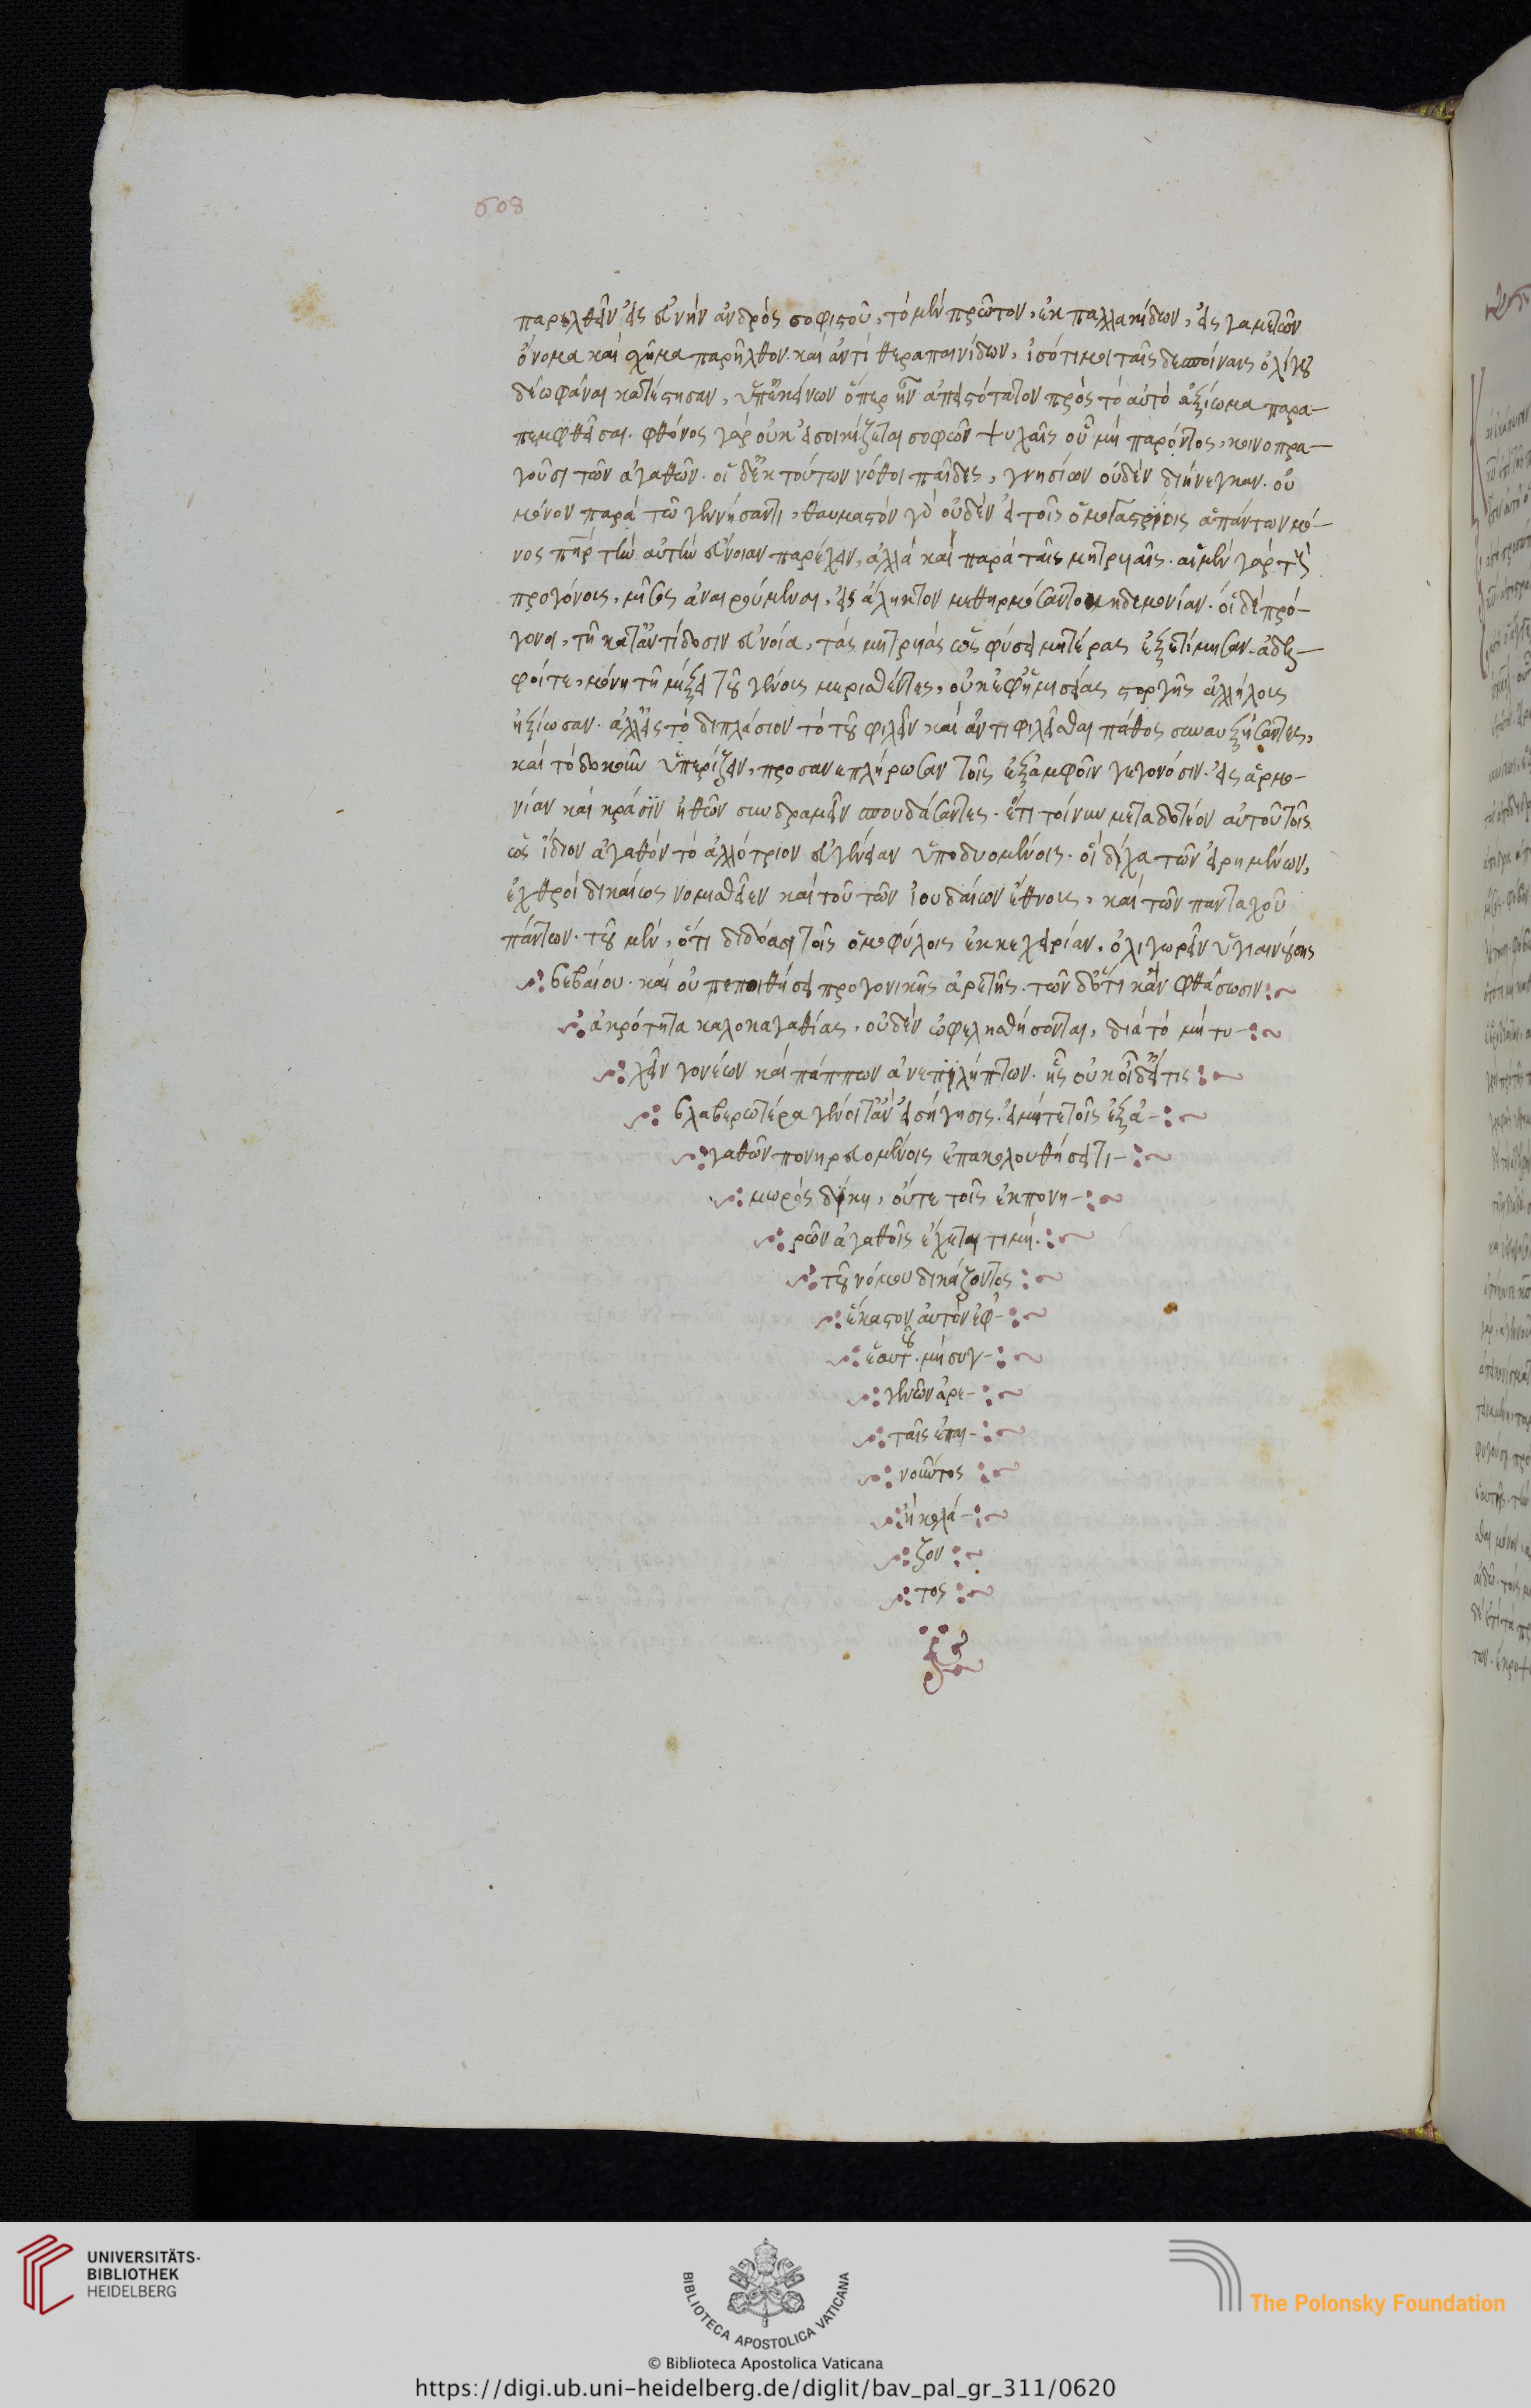 παρελθεῖν εἰς εὐνὴν ἀνδρὸς σοφιστοῦ, τὸ μὲν πρῶτον, ἐκ παλλακίδων, εἰς γαμετῶν
ὄνομα καὶ σχῆμα παρῆλθον. καὶ ἀντὶ θεραπαινίδων, ἰσότιμοι ταῖς δεσποίναις ὀλίγου
δέω φάναι κατέστησαν, ὑπ' ἐκείνων ὅπερ ἦν ἀπιστότατον πρὸς τὸ αὐτὸ ἀξίωμα παρα-
πεμφθεῖσαι. φθόνος γὰρ οὐκ εἰσοικίζεται σοφῶν ψυχαῖς οὗ μὴ παρόντος, κοινοπρα-
γοῦσι τῶν ἀγαθῶν. οἱ δ' ἐκ τούτων νόθοι παῖδες, γνησίων οὐδὲν διήνεγκαν. οὐ
μόνον παρὰ τῶ γεννήσαντι, θαυμαστὸν γὰρ οὐδὲν εἰ τοῖς ὁμογαστρίοις ἁπάντων μό-
νος πηρ τὴν αὐτὴν εὔνοιαν παρεῖχεν, ἀλλὰ καὶ παρὰ ταῖς μητρυιαῖς. αἱ μὲν γὰρ τοῖς
προγόνοις, μῖσος ἀναιρούμεναι, εἰς ἄληκτον μεθηρμόσαντο κηδεμονίαν. οἱ δὲ πρό-
γονοι, τῆ κατ' ἀντίδοσιν εὐνοία, τὰς μητρυιὰς ὡς φύσει μητέρας ἐξετίμησαν. ἀδελ-
φοί τε, μόνη τῆ μίξει τοῦ γένους μερισθέντες, οὐκ ἐφ' ἡμισείας στοργῆς ἀλλήλους
ἠξίωσαν. ἀλλ' εἰς τὸ διπλάσιον τὸ τοῦ φιλεῖν καὶ ἀντιφιλεῖσθαι πάθος συναυξήσαντες,
καὶ τὸ δοκοῦν ὑπερίζειν, προσανεπλήρωσαν τοῖς ἐξ ἀμφοῖν γεγονόσιν. εἰς ἁρμο-
νίαν καὶ κράσιν ἠθῶν συνδραμεῖν σπουδάσαντες. ἔτι τοίνυν μεταδοτέον αὐτοῦ τοῖς
ὡς ἴδιον ἀγαθὸν τὸ ἀλλότριον εὐγένειαν ὑποδυομένοις. οἳ δίχα τῶν εἰρημένων,
ἐχθροὶ δικαίως νομισθεῖεν καὶ τοῦ τῶν ἰουδαίων ἔθνους, καὶ τῶν πανταχοῦ
πάντων. τοῦ μὲν, ὅτι διδόασι τοῖς ὁμοφύλοις ἐκεχειρίαν, ὀλιγωρεῖν ὑγιαινούσης
βεβαίου. καὶ οὐ πεποιθήσει προγονικῆς ἀρετῆς. τῶν δ' ὅτι κἂν φθάσωσιν
ἀκρότητα καλοκαγαθίας, οὐδὲν ὠφεληθήσονται, διὰ τὸ μὴ τυ-
χεῖν γονέων καὶ πάππων ἀνεπιλήπτων. ἧς οὐκ οἶδ' εἴ τις
βλαβερωτέρα γένοιτ' ἂν εἰσήγησις. εἰ μήτε τοῖς ἐξ ἀ-
γαθῶν πονηρευομένοις ἐπακολουθήσει τι-
μωρὸς δίκη, οὔτε τοῖς ἐκ πονη-
ρῶν ἀγαθοῖς ἕψεται τιμή.
τοῦ νόμου δικάζοντος
ἕκαστον αὐτὸν ἐφ'
ἑαυτοῦ. μὴ συγ-
γενῶν ἀρε-
ταῖς ἐπαι-
νοῦντος
ἢ κολά-
ζον
τος
608
UNIVERSITÄTS-
BIBLIOTHEK
HEIDELBERG
BIBLIOTECA APOSTOLICA VATICANA
The Polonsky Foundation
© Biblioteca Apostolica Vaticana
https://digi.ub.uni-heidelberg.de/diglit/bav_pal_gr_311/0620